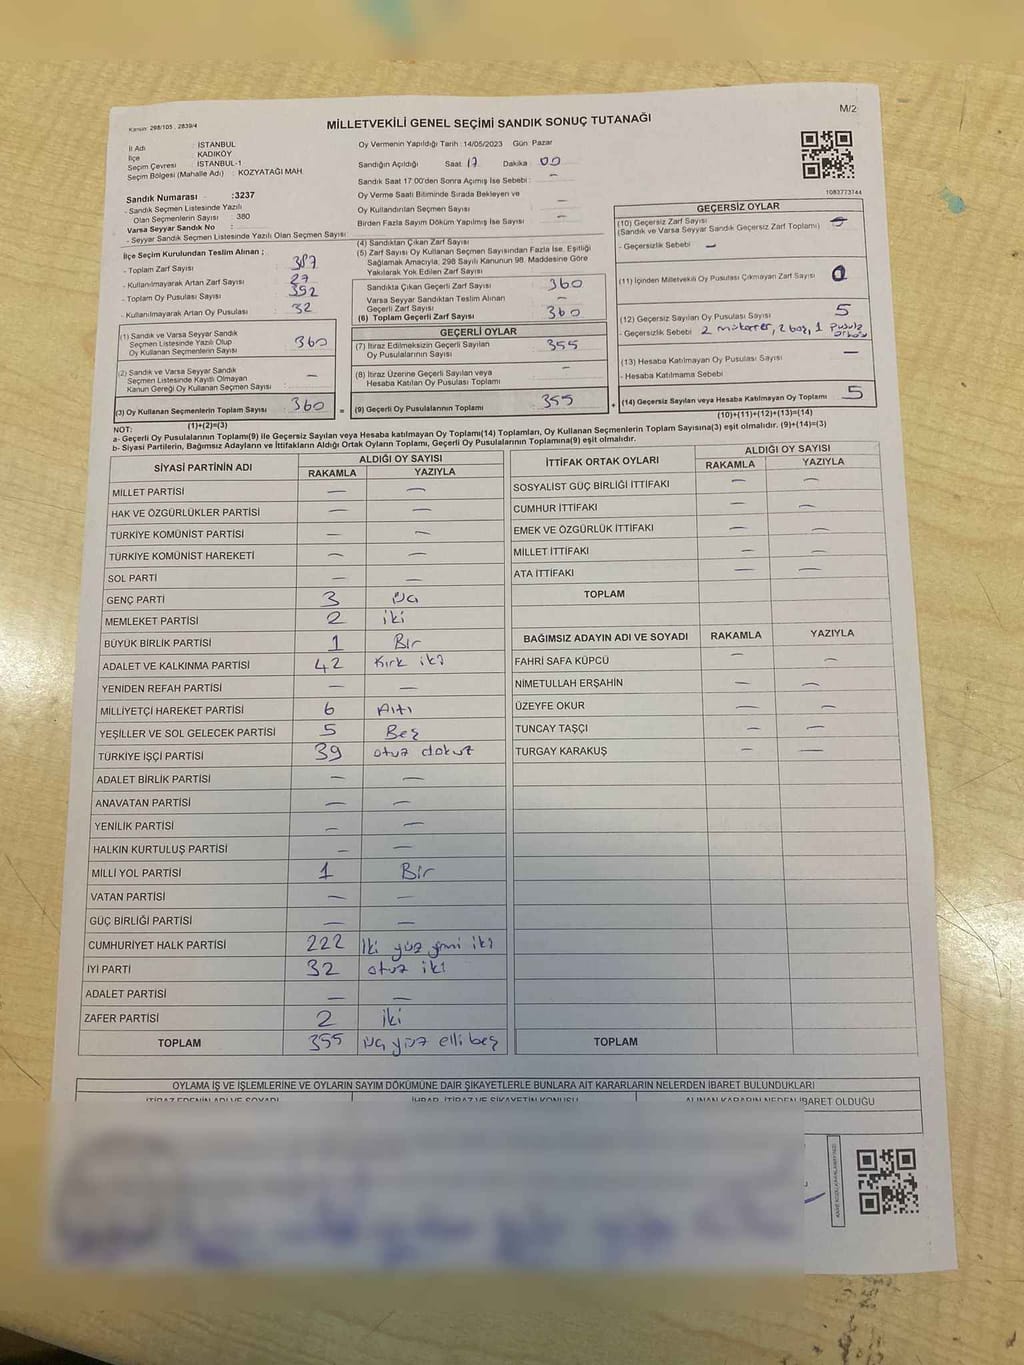 Kanun 298/105 , 2839/4
M/2
MİLLETVEKİLİ GENEL SEÇİMİ SANDIK SONUÇ TUTANAĞI
İl Adı : İSTANBUL
İlçe KADIKÖY
Seçim Çevresi : İSTANBUL-1
Seçim Bölgesi (Mahalle Adı) : KOZYATAĞI MAH.
Sandık Numarası :3237
- Sandık Seçmen Listesinde Yazılı
Olan Seçmenlerin Sayısı : 380
Varsa Seyyar Sandık No :
- Seyyar Sandık Seçmen Listesinde Yazılı Olan Seçmen Sayısı
İlçe Seçim Kurulundan Teslim Alınan ;
- Toplam Zarf Sayısı 387
- Kullanılmayarak Artan Zarf Sayısı 27
- Toplam Oy Pusulası Sayısı 392
- Kullanılmayarak Artan Oy Pusulası 32
(1) Sandık ve Varsa Seyyar Sandık
Seçmen Listesinde Yazılı Olup
Oy Kullanan Seçmenlerin Sayısı 360
(2) Sandık ve Varsa Seyyar Sandık
Seçmen Listesinde Kayıtlı Olmayan
Kanun Gereği Oy Kullanan Seçmen Sayısı —
(3) Oy Kullanan Seçmenlerin Toplam Sayısı 360 =
(1)+(2)=(3)
Oy Vermenin Yapıldığı Tarih : 14/05/2023 Gün: Pazar
Sandığın Açıldığı Saat 17 Dakika : 00
Sandık Saat 17:00'den Sonra Açımış İse Sebebi : —
Oy Verme Saati Bitiminde Sırada Bekleyen ve
Oy Kullandırılan Seçmen Sayısı —
Birden Fazla Sayım Döküm Yapılmış İse Sayısı —
(4) Sandıktan Çıkan Zarf Sayısı
(5) Zarf Sayısı Oy Kullanan Seçmen Sayısından Fazla İse, Eşitliği
Sağlamak Amacıyla, 298 Sayılı Kanunun 98. Maddesine Göre
Yakılarak Yok Edilen Zarf Sayısı
Sandıkta Çıkan Geçerli Zarf Sayısı 360
Varsa Seyyar Sandıktan Teslim Alınan
Geçerli Zarf Sayısı —
(6) Toplam Geçerli Zarf Sayısı 360
GEÇERLİ OYLAR
(7) İtiraz Edilmeksizin Geçerli Sayılan
Oy Pusulalarının Sayısı 355
(8) İtiraz Üzerine Geçerli Sayılan veya
Hesaba Katılan Oy Pusulası Toplamı —
(9) Geçerli Oy Pusulalarının Toplamı 355 +
1083773144
GEÇERSİZ OYLAR
(10) Geçersiz Zarf Sayısı
(Sandık ve Varsa Seyyar Sandık Geçersiz Zarf Toplamı)
- Geçersizlik Sebebi —
(11) İçinden Milletvekili Oy Pusulası Çıkmayan Zarf Sayısı 0
(12) Geçersiz Sayılan Oy Pusulası Sayısı 5
- Geçersizlik Sebebi 2 mükerrer, 2 boş, 1 pusula
(13) Hesaba Katılmayan Oy Pusulası Sayısı —
- Hesaba Katılmama Sebebi
(14) Geçersiz Sayılan veya Hesaba Katılmayan Oy Toplamı 5
(10)+(11)+(12)+(13)=(14)
NOT:
a- Geçerli Oy Pusulalarının Toplamı(9) ile Geçersiz Sayılan veya Hesaba katılmayan Oy Toplamı(14) Toplamları, Oy Kullanan Seçmenlerin Toplam Sayısına(3) eşit olmalıdır. (9)+(14)=(3)
b- Siyasi Partilerin, Bağımsız Adayların ve İttifakların Aldığı Ortak Oyların Toplamı, Geçerli Oy Pusulalarının Toplamına(9) eşit olmalıdır.
SİYASİ PARTİNİN ADI ALDIĞI OY SAYISI
RAKAMLA YAZIYLA
MİLLET PARTİSİ — —
HAK VE ÖZGÜRLÜKLER PARTİSİ — —
TÜRKİYE KOMÜNİST PARTİSİ — —
TÜRKİYE KOMÜNİST HAREKETİ — —
SOL PARTİ — —
GENÇ PARTİ 3 üç
MEMLEKET PARTİSİ 2 iki
BÜYÜK BİRLİK PARTİSİ 1 Bir
ADALET VE KALKINMA PARTİSİ 42 Kırk iki
YENİDEN REFAH PARTİSİ — —
MİLLİYETÇİ HAREKET PARTİSİ 6 Altı
YEŞİLLER VE SOL GELECEK PARTİSİ 5 Beş
TÜRKİYE İŞÇİ PARTİSİ 39 otuz dokuz
ADALET BİRLİK PARTİSİ — —
ANAVATAN PARTİSİ — —
YENİLİK PARTİSİ — —
HALKIN KURTULUŞ PARTİSİ — —
MİLLİ YOL PARTİSİ 1 Bir
VATAN PARTİSİ — —
GÜÇ BİRLİĞİ PARTİSİ — —
CUMHURİYET HALK PARTİSİ 222 İki yüz yirmi iki
İYİ PARTİ 32 otuz iki
ADALET PARTİSİ — —
ZAFER PARTİSİ 2 iki
TOPLAM 355 üç yüz elli beş
İTTİFAK ORTAK OYLARI ALDIĞI OY SAYISI
RAKAMLA YAZIYLA
SOSYALİST GÜÇ BİRLİĞİ İTTİFAKI — —
CUMHUR İTTİFAKI — —
EMEK VE ÖZGÜRLÜK İTTİFAKI — —
MİLLET İTTİFAKI — —
ATA İTTİFAKI — —
TOPLAM
BAĞIMSIZ ADAYIN ADI VE SOYADI RAKAMLA YAZIYLA
FAHRİ SAFA KÜPCÜ — —
NİMETULLAH ERŞAHİN — —
ÜZEYFE OKUR — —
TUNCAY TAŞÇI — —
TURGAY KARAKUŞ — —
TOPLAM
OYLAMA İŞ VE İŞLEMLERİNE VE OYLARIN SAYIM DÖKÜMÜNE DAİR ŞİKAYETLERLE BUNLARA AİT KARARLARIN NELERDEN İBARET BULUNDUKLARI
İTİRAZ EDENİN ADI VE SOYADI İHBAR, İTİRAZ VE ŞİKAYETİN KONUSU ALINAN KARARIN NEDEN İBARET OLDUĞU